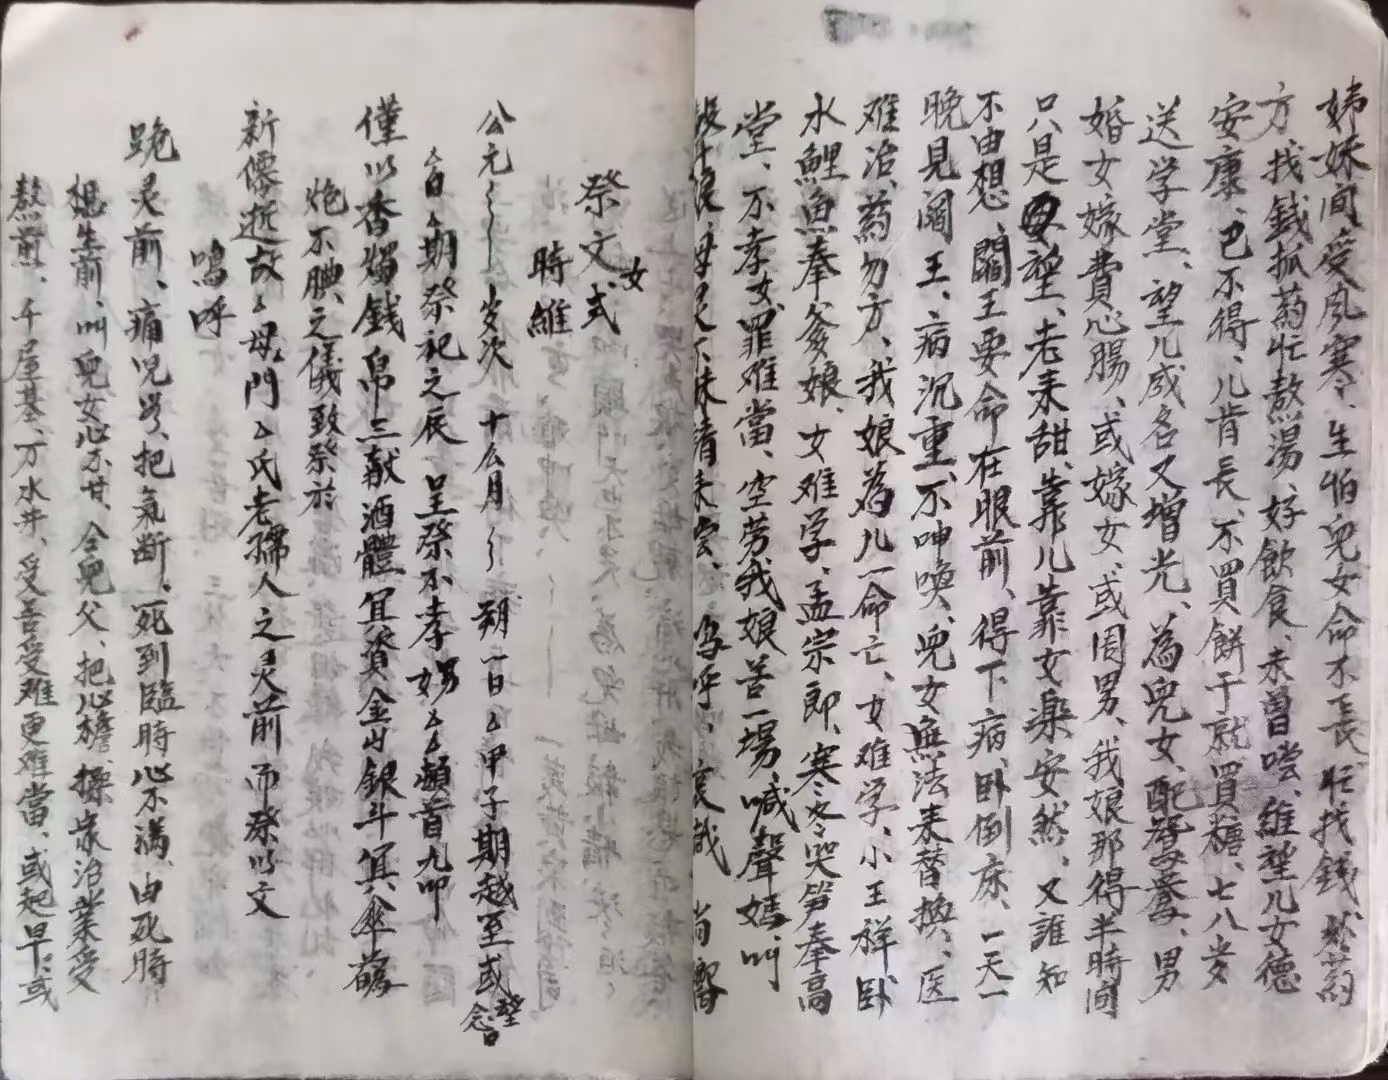 姊妹间受风寒、生怕兒女命不長、忙找錢、炒药
方、找錢抓药忙熬湯、好飲食、未曽嘗、維望儿女德
安康、巴不得、儿肯長、不買餅干就買糖、七八岁
送学堂、望儿成名又增光、為兒女、配婚、男
婚女嫁費心腸、或嫁女、或周男、我娘那得半時间
只是望、老来甜、靠儿靠女樂安然、又誰知
不由想、閻王要命在眼前、得下病、卧倒床、一天一
晚見閻王、病沉重、不呻喚、兒女無法来替換、医
难治、药勿方、我娘為儿一命亡、女难学、小王祥卧
水鯉魚奉爹娘、女难学、孟宗郎、寒冬哭笋奉高
堂、不孝女、罪难當、空劳我娘苦一場、喊聲媽、叫
娘、母灵下来清来尝、嗚呼、哀哉 尚饗
祭文式 女
時維
公元 岁次 十么月 朔一日么甲子期越至或望念日
么日么期祭祀之辰 呈祭不孝男女么么頻首九叩
僅以香燭錢帛三献酒體冥資金斗銀斗冥傘
炮不腆、之儀致祭於
新僊逝故么母、門么氏老孺人之灵前而祭以文
嗚呼
跪灵前、痛児、把氣断、死到臨時心不满、由死時
想生前、叫兒女心不甘、仝兒父、把心擔、操家治業受
熬煎、千屋基、万水井、受苦受难更难當、或起早、或